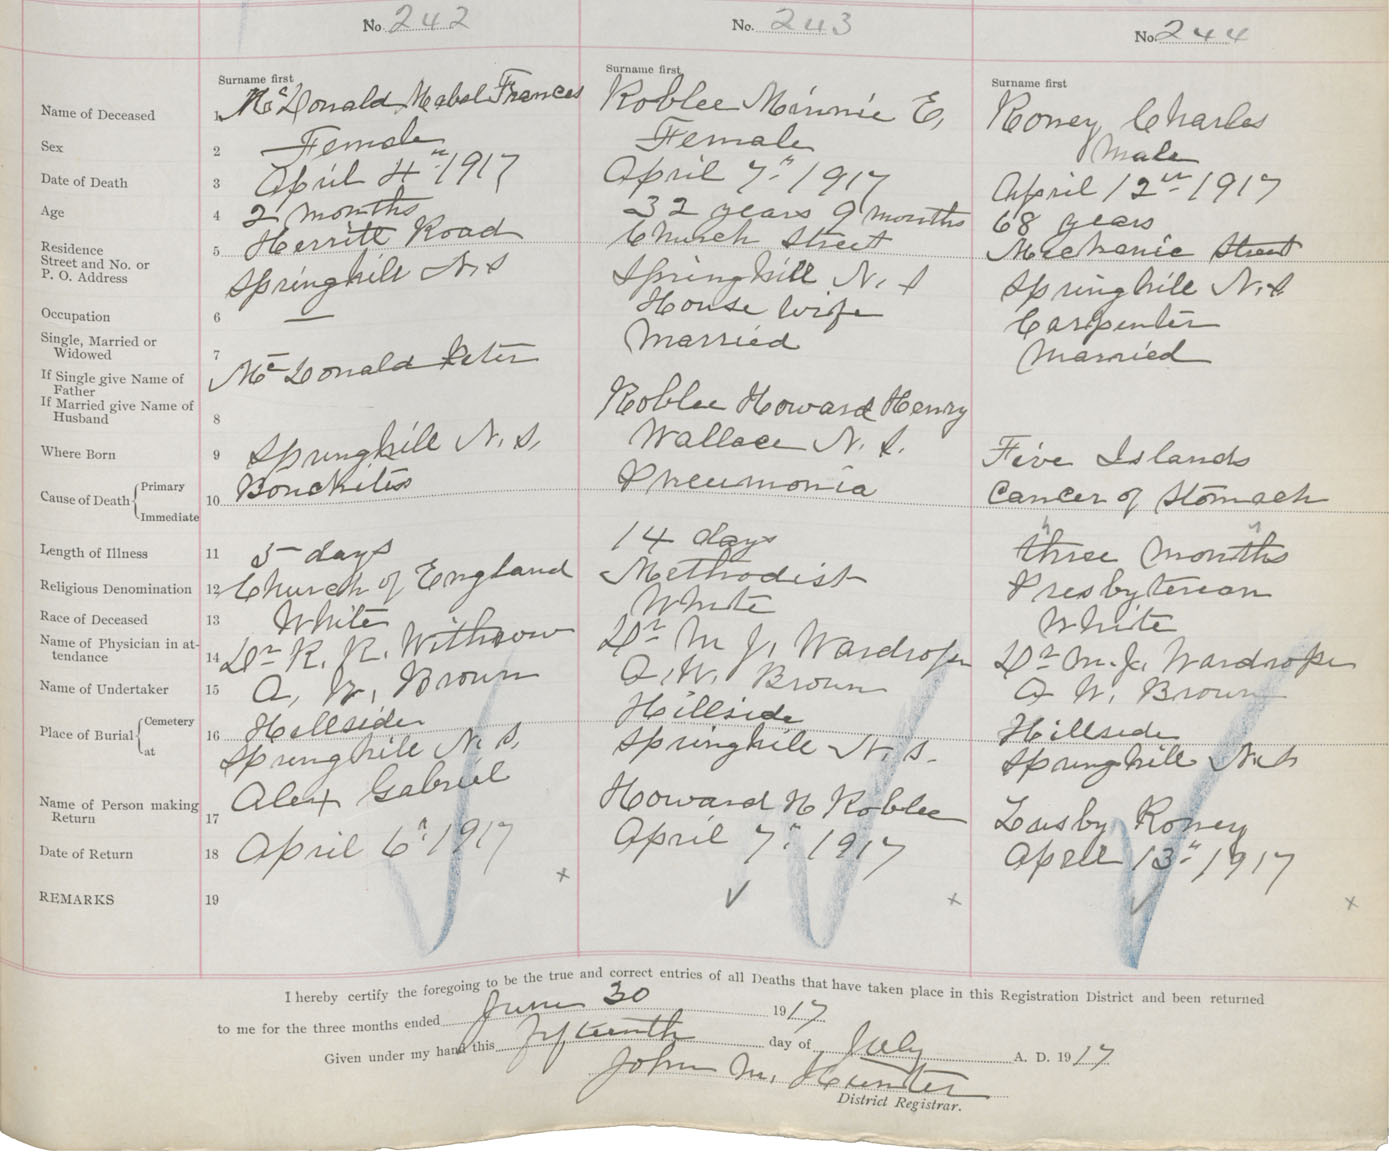 No. 242 No. 243 No. 244
Surname first Surname first Surname first
Name of Deceased 1 McDonald Mabel Frances Roblee Minnie E. Roney Charles
Sex 2 Female Female Male
Date of Death 3 April 4" 1917 April 7" 1917 April 12th 1917
Age 4 2 months 32 years 9 months 68 years
Residence Street and No. or P. O. Address 5 Herritt Road Church Street Mechanic Street
Springhill N. S Springhill N. S Springhill N. S.
Occupation 6 — House wife Carpenter
Single, Married or Widowed 7 Married Married
If Single give Name of Father McDonald Peter
If Married give Name of Husband 8 Roblee Howard Henry
Where Born 9 Springhill N. S. Wallace N. S. Five Islands
Cause of Death Primary Immediate 10 Bonchitis Pneumonia Cancer of Stomach
Length of Illness 11 5 days 14 days "three months"
Religious Denomination 12 Church of England Methodist Presbyterean
Race of Deceased 13 White White White
Name of Physician in attendance 14 Dr R. R. Withrow Dr M. J. Wardroper Dr M. J. Wardroper
Name of Undertaker 15 A. W. Brown A. W. Brown A W. Brown
Place of Burial Cemetery at 16 Hillside Hillside Hillside
Springhill N. S. Springhill N. S. Springhill N. S
Name of Person making Return 17 Alex Gabriel Howard H Roblee Roney
Date of Return 18 April 6" 1917 April 7" 1917 April 13" 1917
REMARKS 19 x x x
I hereby certify the foregoing to be the true and correct entries of all Deaths that have taken place in this Registration District and been returned
to me for the three months ended June 30 1917
Given under my hand this fifteenth day of July A. D. 1917
John M. Hunter
District Registrar.